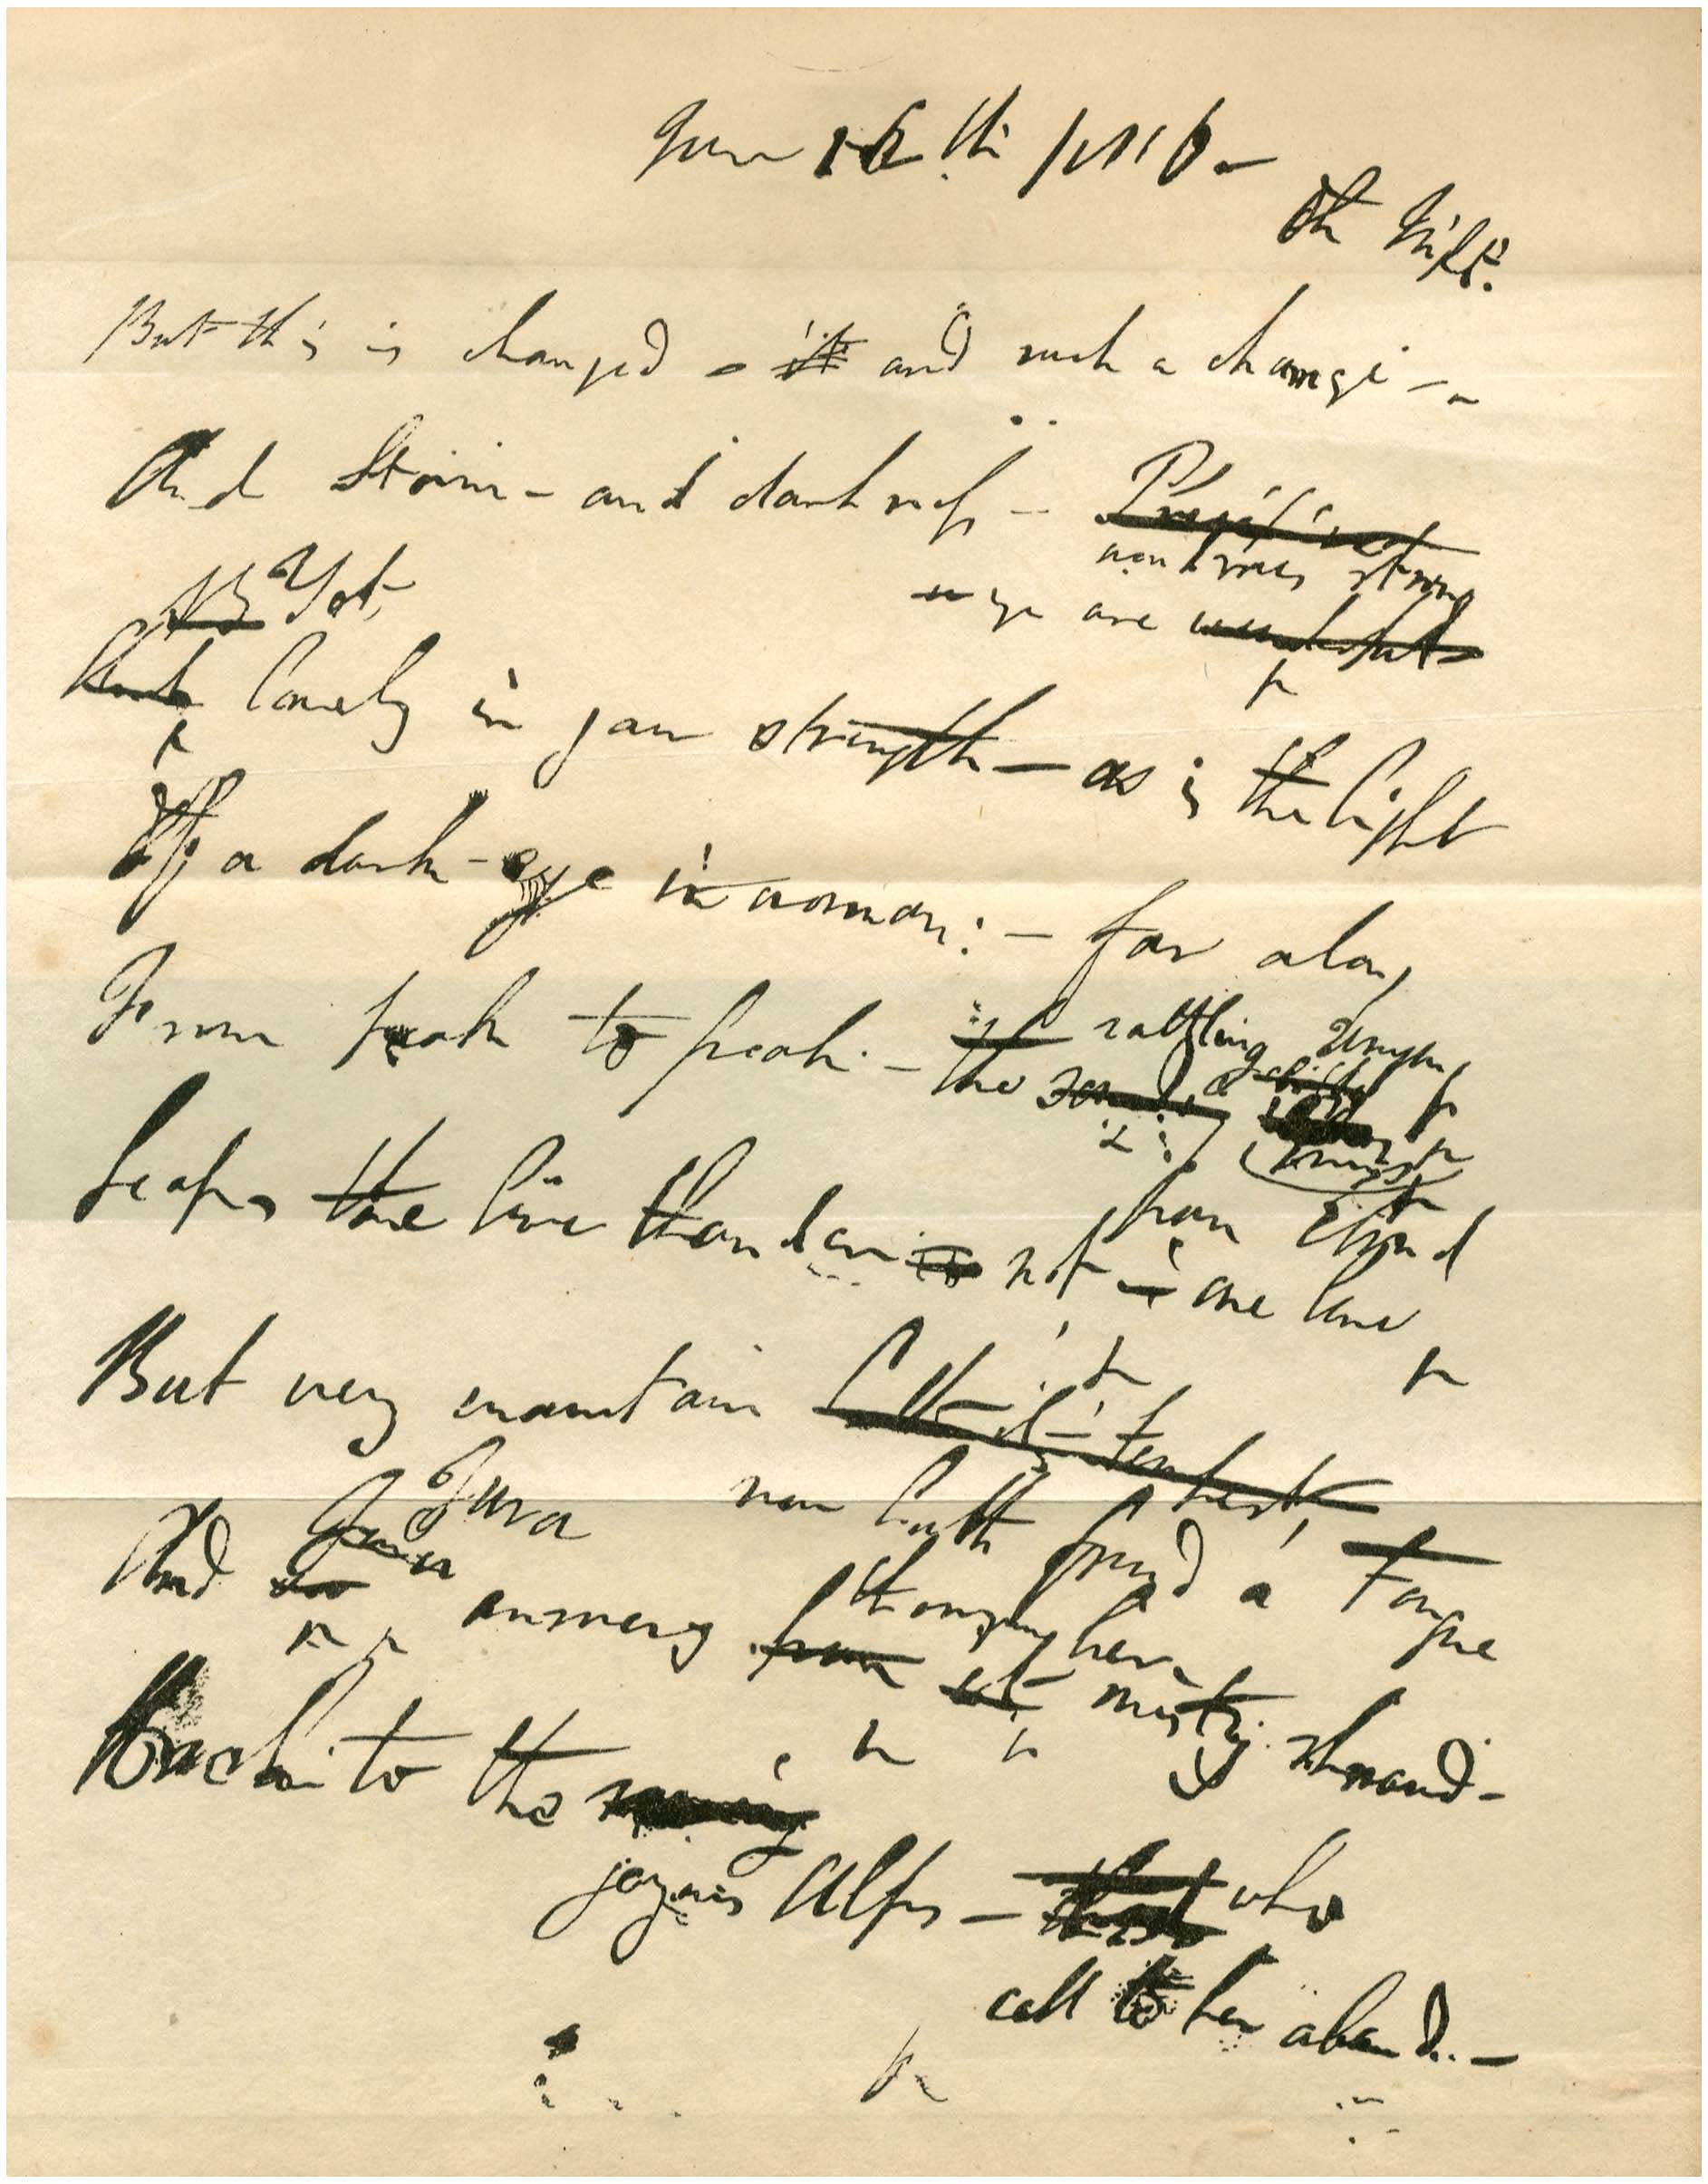 June 16th 1816 –
At Night.
But this is changed – it and such a change –
And Storm – and darkness –
wondrous strong
ye are
Yet,
But lonely in your strength – as is the light
Of a dark-eye in woman: – far along
From peak to peak – the rattling among
Leaps the live thunder not one lone
from cloud
But every mountain tempest,
now hath found a tongue
And Jura answers through her misty shroud –
from
Back to the
joyous Alps – who
call to her aloud. –